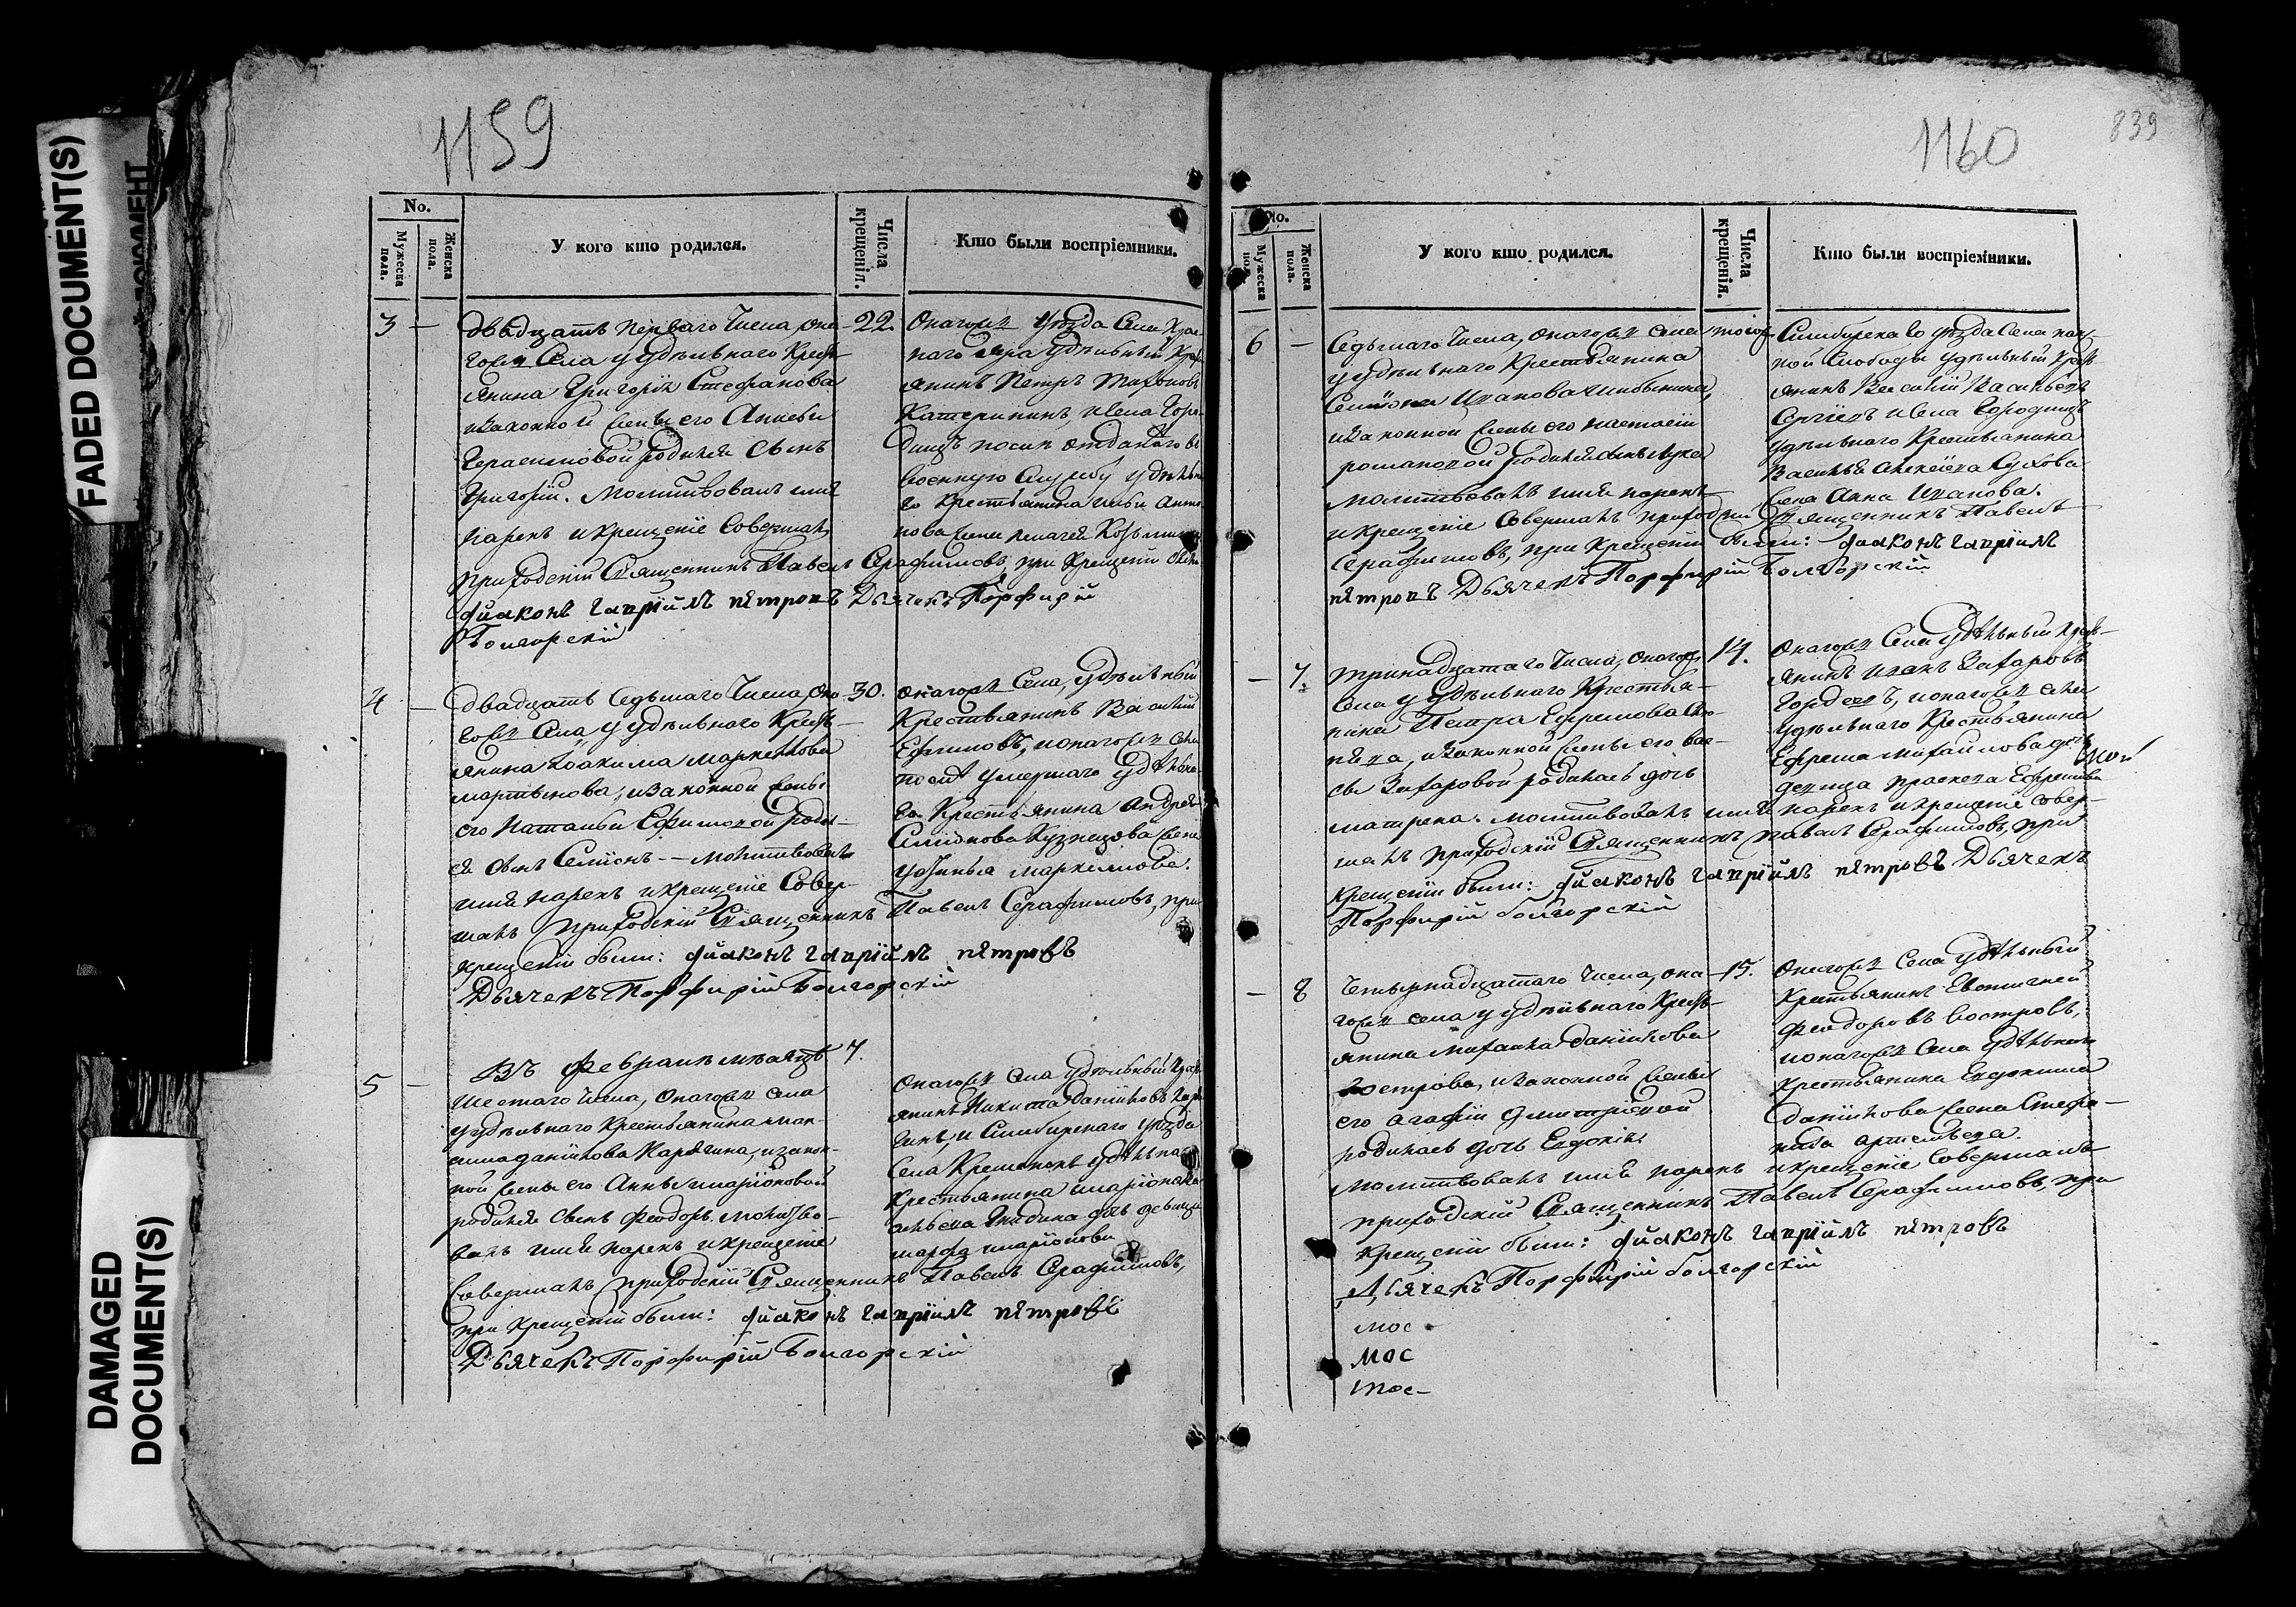 FADED DOCUMENT(S)
DOCUMENT
DAMAGED
DOCUMENT(S)
1159
No.
Мужеска пола.
Женска пола.
У кого кто родился.
Числа крещенія.
Кто были воспріемники.
3 — двадцать перваго числа, она- 22.
гожъ села у удѣльнаго кресть-
янина Григорія Стефанова
и законной жены его
Герасимовой родился сынъ
Григорій. Молитвовалъ имя
нарекъ и крещеніе совершалъ
приходскій священникъ Павелъ Серафимовъ, при крещеніи были
діаконъ гавріилъ петровъ Дьячекъ Порфирій
Болгорскій
Онагожъ уѣзда села
удѣльный кресть-
янинъ Петръ
села Горо-
дищъ отданаго въ
военную службу удѣльна-
го крестьянина
4 — двадцать седьмаго числа, она- 30.
гожъ села у удѣльнаго кресть-
янина Іоакима Маркеллова
Мартынова, и законной жены
его Натальи Ефимовой роди-
ся сынъ Семіонъ — молитвовалъ
имя нарекъ и крещеніе совер-
шалъ приходскій священникъ Павелъ Серафимовъ, при
крещеніи были: діаконъ гавріилъ петровъ
Дьячекъ Порфирій Болгорскій
онагожъ села, удѣльный
крестьянинъ Василій
Ефимовъ, и онагожъ села
умершаго удѣльна-
го крестьянина Андрея
Семіонова Кузнецова жена
Устинья Маркеллова.
Въ Февралѣ мѣсяцѣ 7.
5 — шестаго числа, онагожъ села
у удѣльнаго крестьянина
данилова Карягина, и закон-
ной жены его Анны иларіоновой
родился сынъ Феодоръ. молитво-
валъ имя нарекъ и крещеніе
совершалъ приходскій священникъ Павелъ Серафимовъ,
при крещеніи были: діаконъ гавріилъ петровъ
Дьячекъ Порфирій Болгорскій
Онагожъ села удѣльный
янинъ Никита Даниловъ
и Симбирскаго уѣзда
села Кременокъ удѣльнаго
крестьянина иларіона
дочь девица
марфа иларіонова
1160
839
No.
Мужеска пола.
Женска пола.
У кого кто родился.
Числа крещенія.
Кто были воспріемники.
6 — Седьмаго числа, онагожъ села
у удѣльнаго крестьянина
Семіона Иванова
и законной жены его Настасіи
романовой родился сынъ Лука
молитвовалъ имя нарекъ
и крещеніе совершалъ приходскій священникъ Павелъ
Серафимовъ, при крещеніи были: діаконъ гавріилъ
петровъ Дьячекъ Порфирій Болгорскій
Симбирскаго уѣзда села
ной Слободы удѣльный кресть-
янинъ Василій Васильевъ
Сергіевъ и села Городищъ
удѣльнаго крестьянина
Василья Алексіева Сухова
жена Анна Иванова.
— 7. тринадцатаго числа, онагожъ 14.
села у удѣльнаго крестья-
нина Петра Ефремова
и законной жены его Ва-
сы Захаровой родилась дочь
матрена. молитвовалъ имя нарекъ и крещеніе совер-
шалъ приходскій священникъ павелъ Серафимовъ, при
крещеніи были: діаконъ гавріилъ петровъ Дьячекъ
Порфирій болгорскій
Онагожъ села удѣльный кресть-
янинъ иванъ Захаровъ
Гордеевъ, и онагожъ села
удѣльнаго крестьянина
Ефрема Михайлова дочь
девица праскева Ефремова
— 8 Четырнадцатаго числа, она- 15.
гожъ села у удѣльнаго кресть-
янина Михаила данилова
Вострова, и законной жены
его Агафіи Дмитріевой
родилась дочь Евдокія
молитвовалъ имя нарекъ и крещеніе совершалъ
приходскій священникъ Павелъ Серафимовъ, при
крещеніи были: діаконъ гавріилъ петровъ
Дьячекъ Порфирій болгорскій
Онагожъ села удѣльный
крестьянинъ Евстигней
Феодоровъ Востровъ,
и онагожъ села удѣльнаго
крестьянина Евдокима
данилова жена Стефа-
нида артемьева.
мос
мос
мос